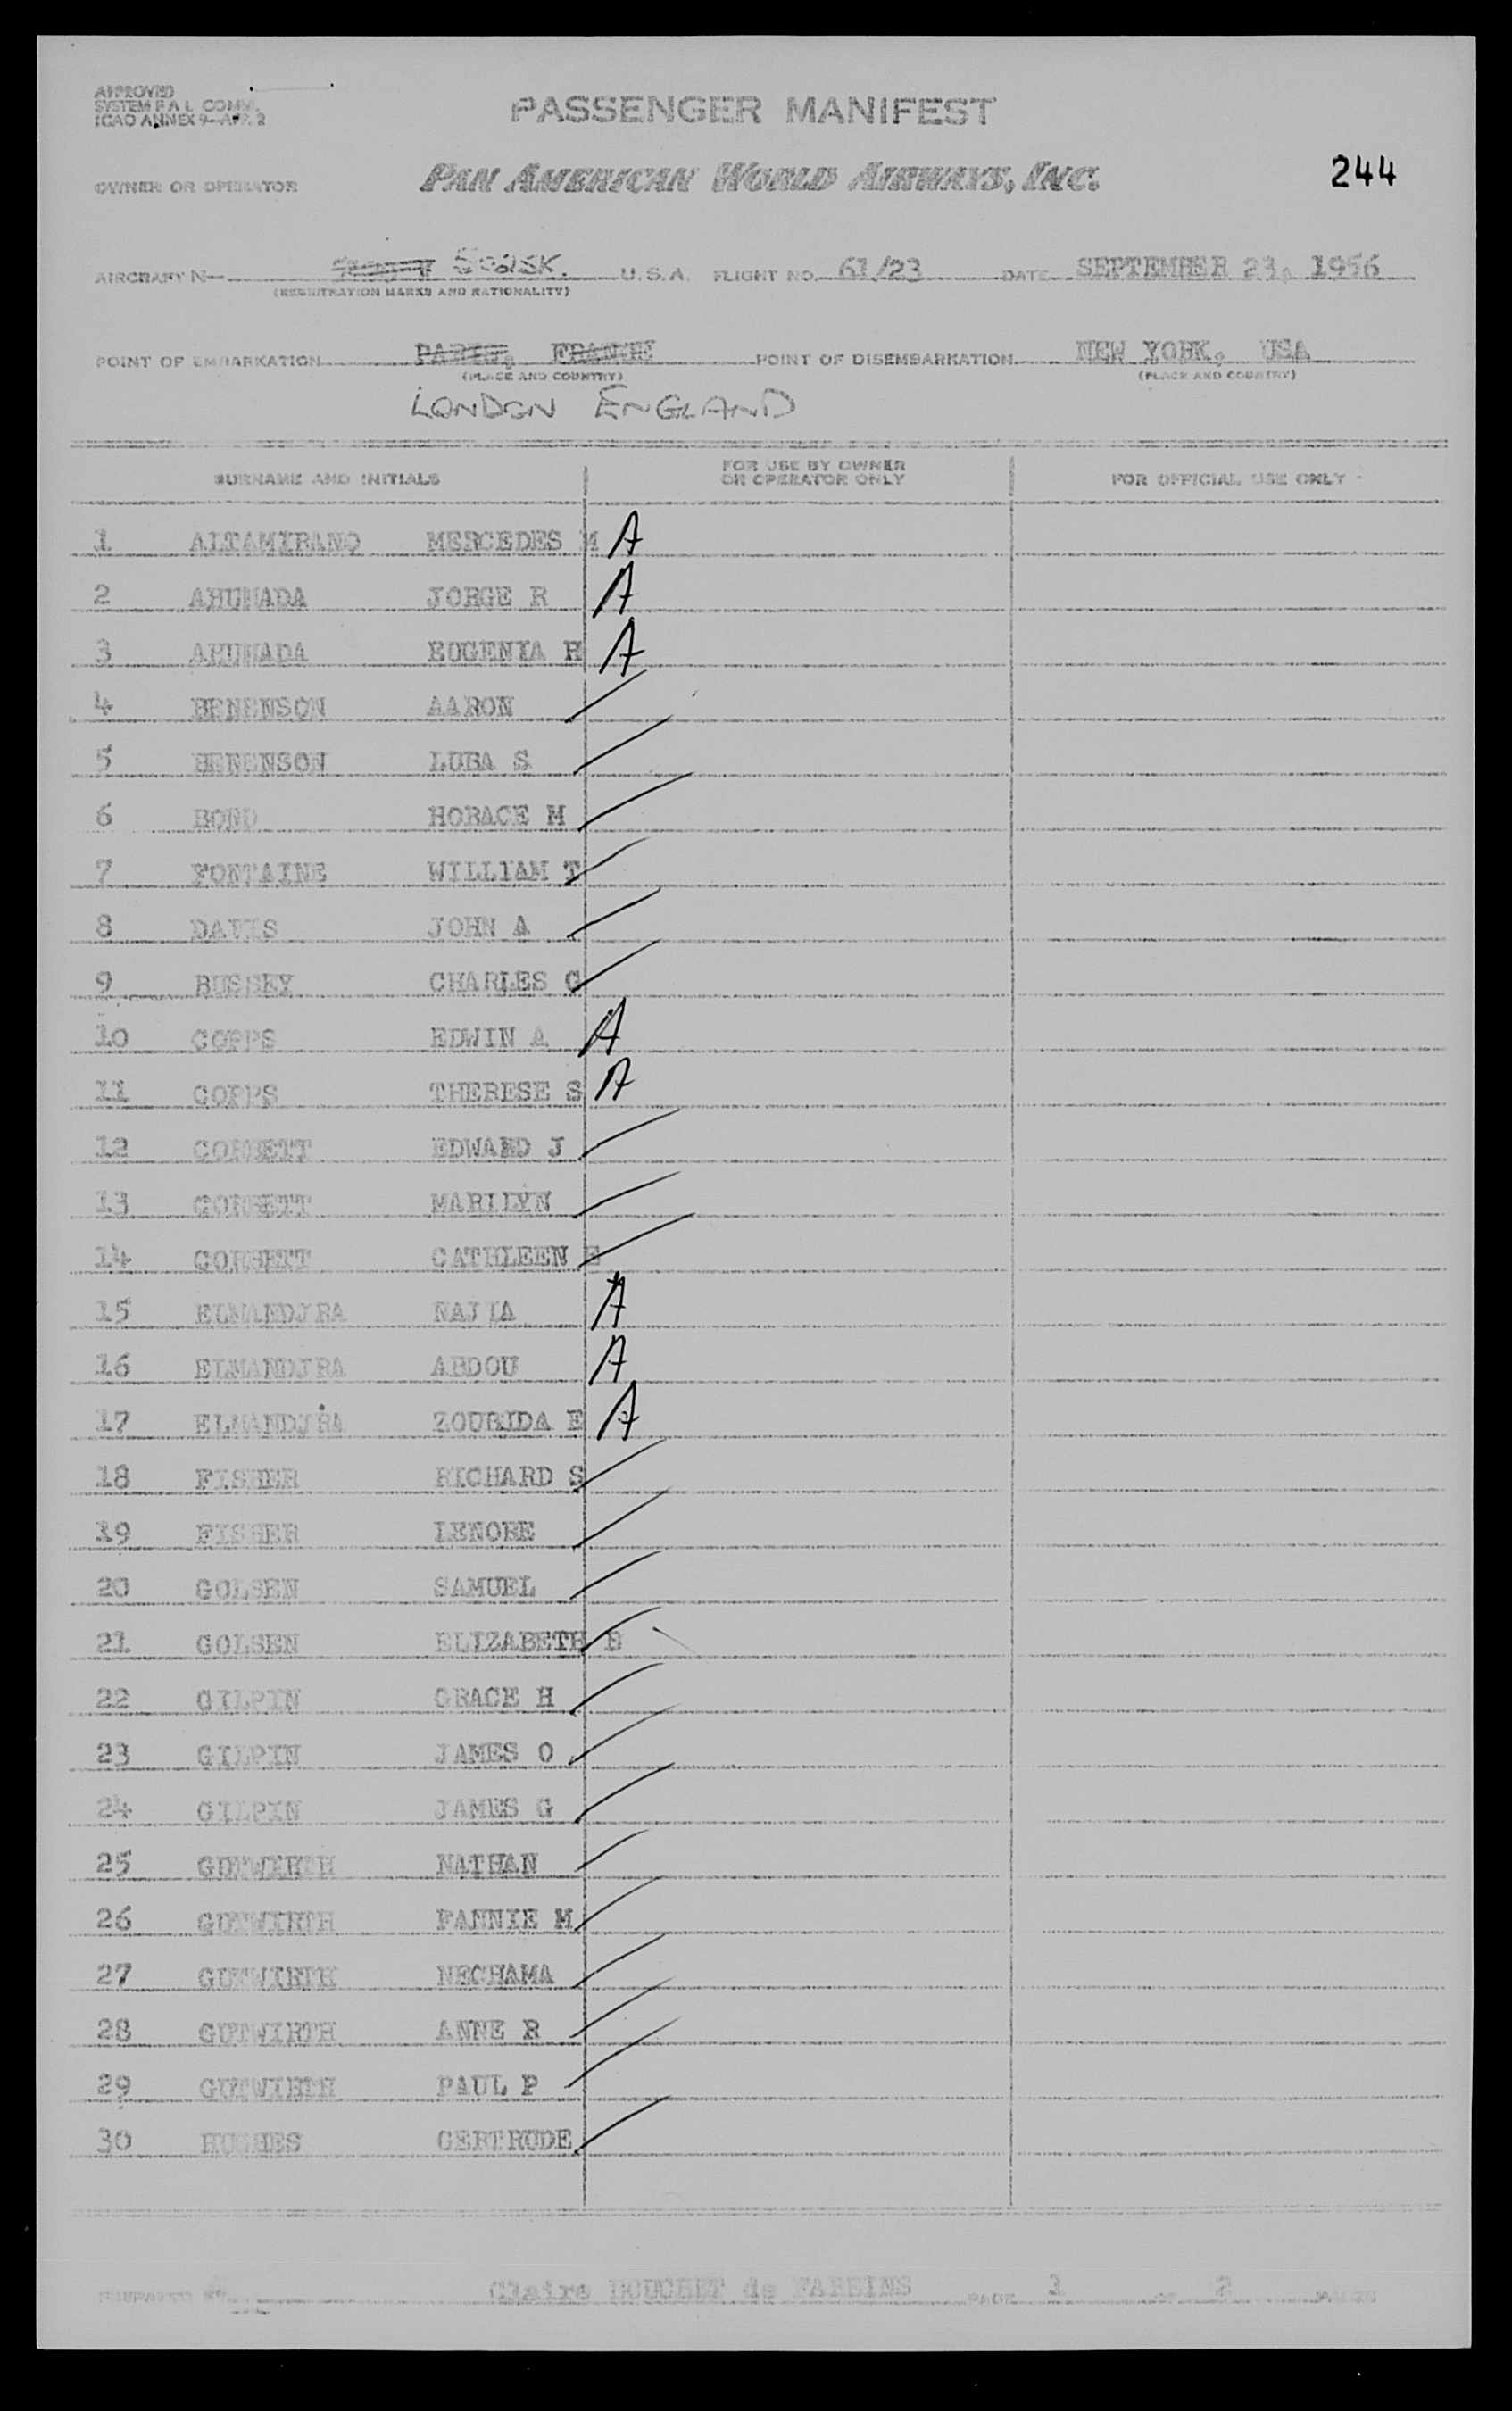 APPROVED
SYSTEM F A L COMM.
ICAO ANNEX 9—APP. 2
PASSENGER MANIFEST
OWNER OR OPERATOR PAN AMERICAN WORLD AIRWAYS, INC. 244
AIRCRAFT N— U.S.A. FLIGHT NO. 61/23 DATE SEPTEMBER 23, 1956
(REGISTRATION MARKS AND NATIONALITY)
POINT OF EMBARKATION PARIS, FRANCE POINT OF DISEMBARKATION NEW YORK, USA
(PLACE AND COUNTRY) (PLACE AND COUNTRY)
LONDON ENGLAND
SURNAME AND INITIALS FOR USE BY OWNER OR OPERATOR ONLY FOR OFFICIAL USE ONLY
1 ALTAMIRANO MERCEDES M A
2 AHUMADA JORGE R A
3 AHUMADA EUGENIA H A
4 BENENSON AARON
5 BENENSON LUBA S
6 BOND HORACE M
7 FONTAINE WILLIAM T
8 DAVIS JOHN A
9 BUSSEY CHARLES C
10 COPPS EDWIN A A
11 COPPS THERESE S A
12 CORBETT EDWARD J
13 CORBETT MARILYN
14 CORBETT CATHLEEN E
15 ELMANDJRA NAJIA A
16 ELMANDJRA ABDOU A
17 ELMANDJRA ZOUBIDA E A
18 FISHER RICHARD S
19 FISHER LENORE
20 GOLSEN SAMUEL
21 GOLSEN ELIZABETH B
22 GILPIN GRACE H
23 GILPIN JAMES O
24 GILPIN JAMES G
25 GUTWIRTH NATHAN
26 GUTWIRTH FANNIE M
27 GUTWIRTH NECHAMA
28 GUTWIRTH ANNE R
29 GUTWIRTH PAUL P
30 HUGHES GERTRUDE
PREPARED BY Claire BOUCHET de FAREINS PAGE 1 OF 2 PAGES